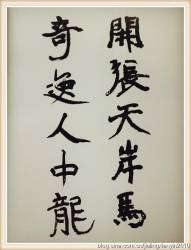 開張天岸馬
奇逸人中龍
blog.sina.com.cn/jielingdanyin2010